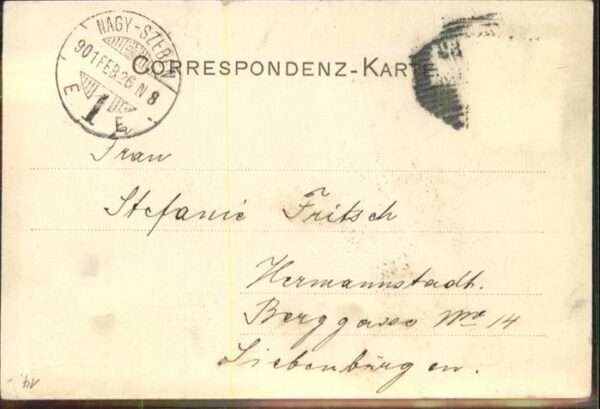 NAGY-SZEB
901 FEB. 26 N 8
E 1 E
CORRESPONDENZ-KARTE
Frau
Stefanie Fritsch
Hermannstadt.
Berggasse No 14
Siebenbürgen.